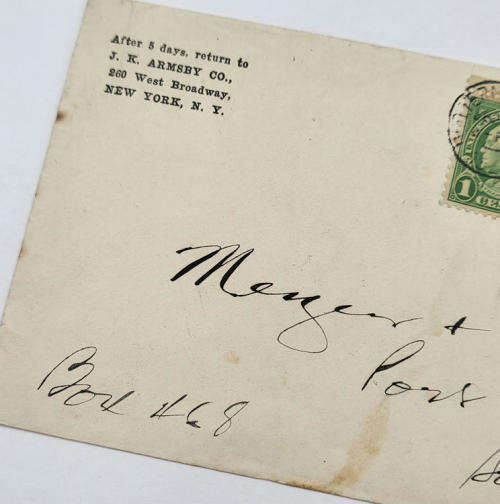 After 5 days, return to
J. K. ARMSBY CO.,
260 West Broadway,
NEW YORK, N. Y.
1
Meyer +
Box 468